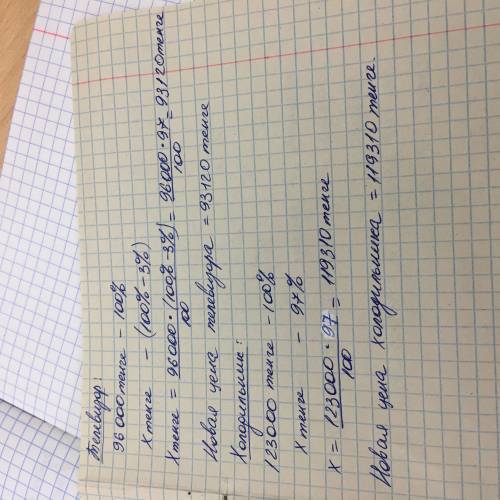 Телевизор:
96000 тенге - 100%
X тенге - (100% - 3%)
X тенге = 96000 • (100% - 3%) / 100 = 96000 • 97 / 100 = 93120 тенге
Новая цена телевизора = 93120 тенге
Холодильник:
123000 тенге - 100%
X тенге - 97%
X = 123000 • 97 / 100 = 119310 тенге
Новая цена холодильника = 119310 тенге.